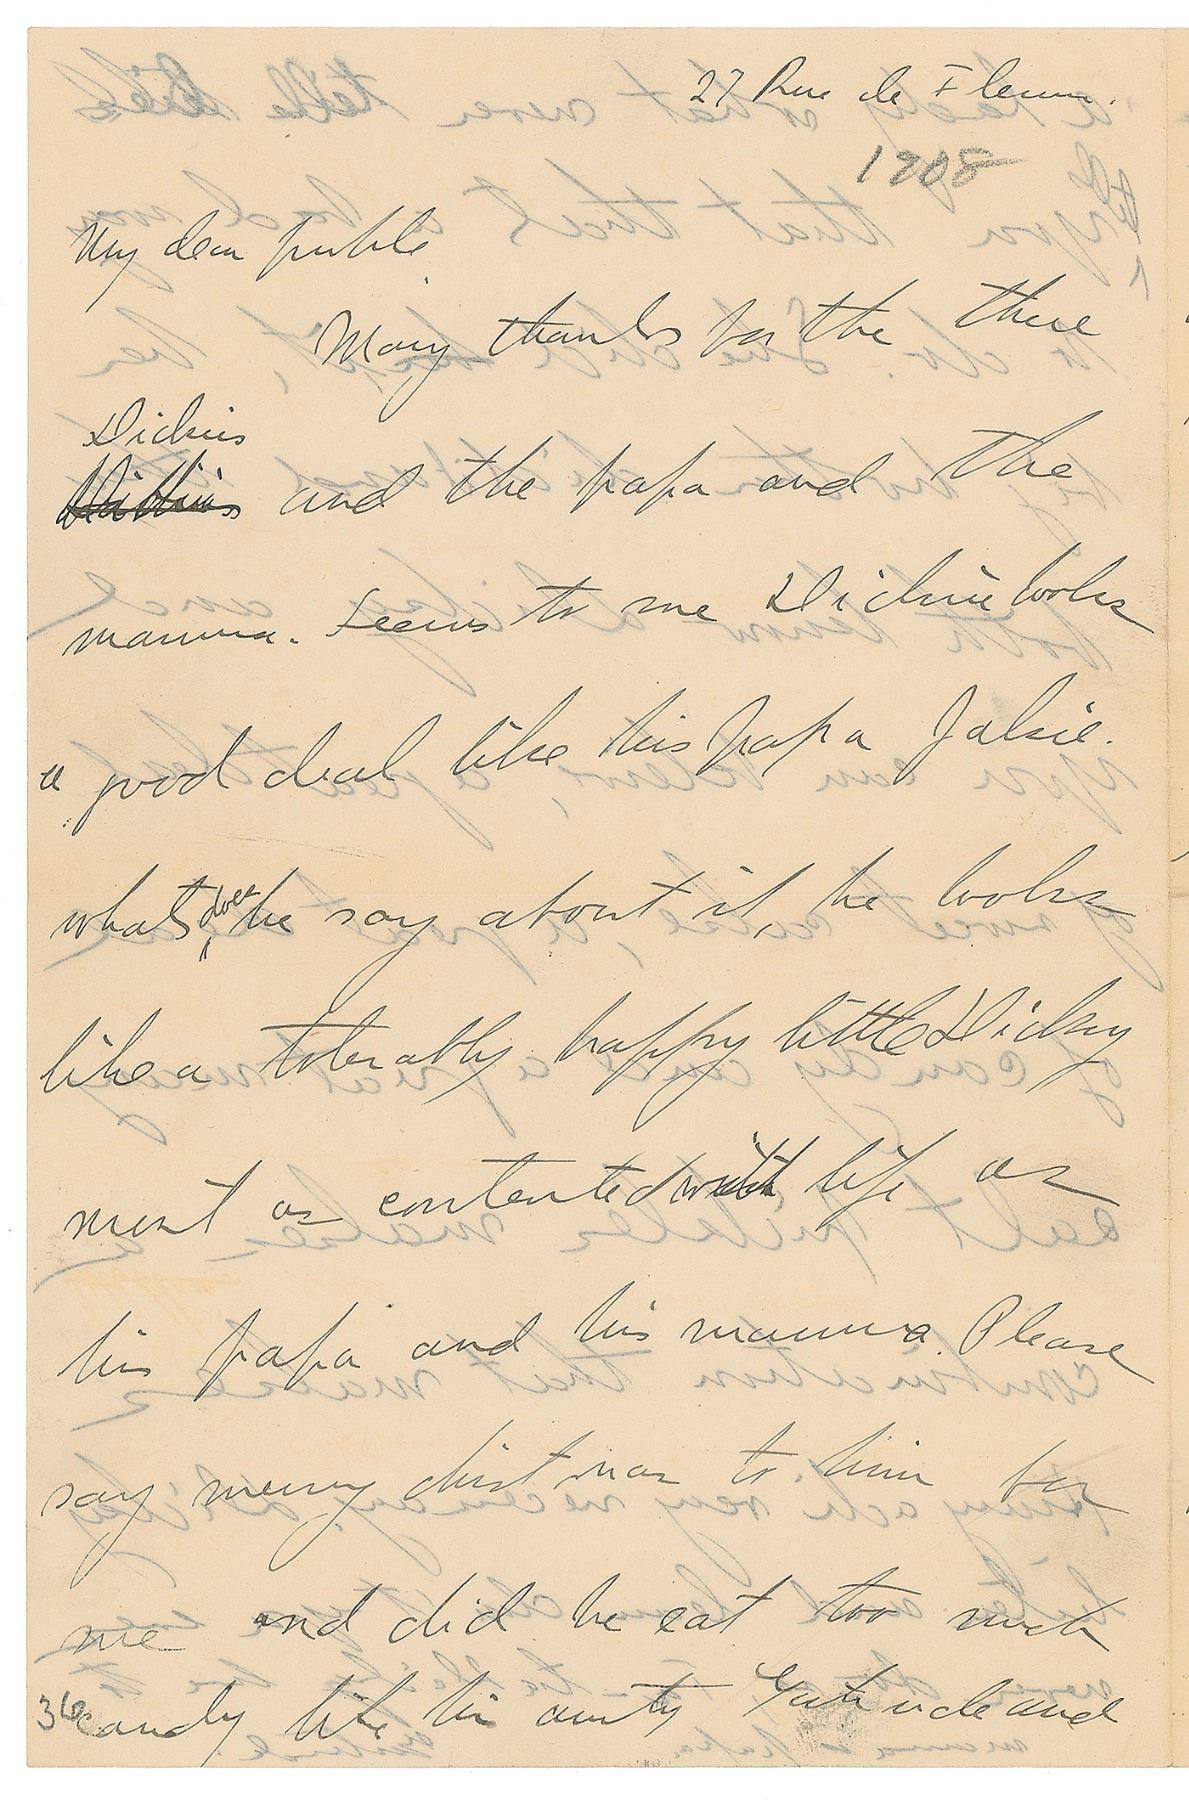 27 Rue de Fleurus.
1908
My dear
Many thanks for the three
Dickies
and the papa and the
mamma. Seems to me Dickie looks
a good deal like his papa Jakie.
what does he say about it, he looks
like a tolerably happy little Dickey
most as contented with life as
his papa and his mamma. Please
say merry dist mas to him for
me and did he eat too much
36
candy like his aunty Gertrude and